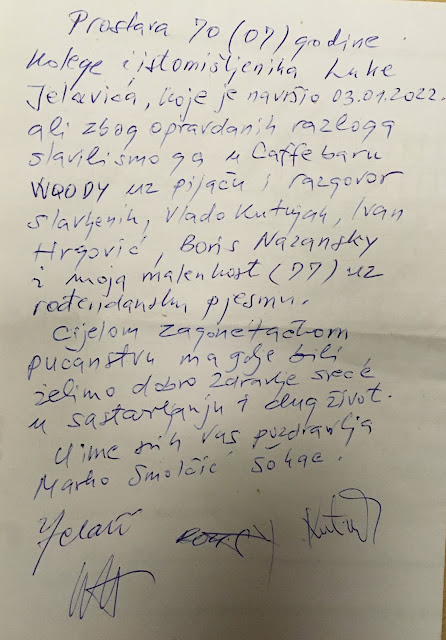 Proslava 70 (07) godine
kolege i istomišljenika Luke
Jelavića, koje je navršio 03.01.2022.
ali zbog opravdanih razloga
slavilismo ga u Caffebaru
WOODY uz pijaču i razgovor
slavljenik, Vlado Kutnjak, Ivan
Hrgović, Boris Nazansky
i moja malenkost (77) uz
rođendansku pjesmu.
Cijelom zagonetačkom
pučanstvu ma gdje bili
želimo dobro zdravlje sreće
u sastavljanju i dug život.
U ime svih vas pozdravlja
Marko Smolčić Šokac.